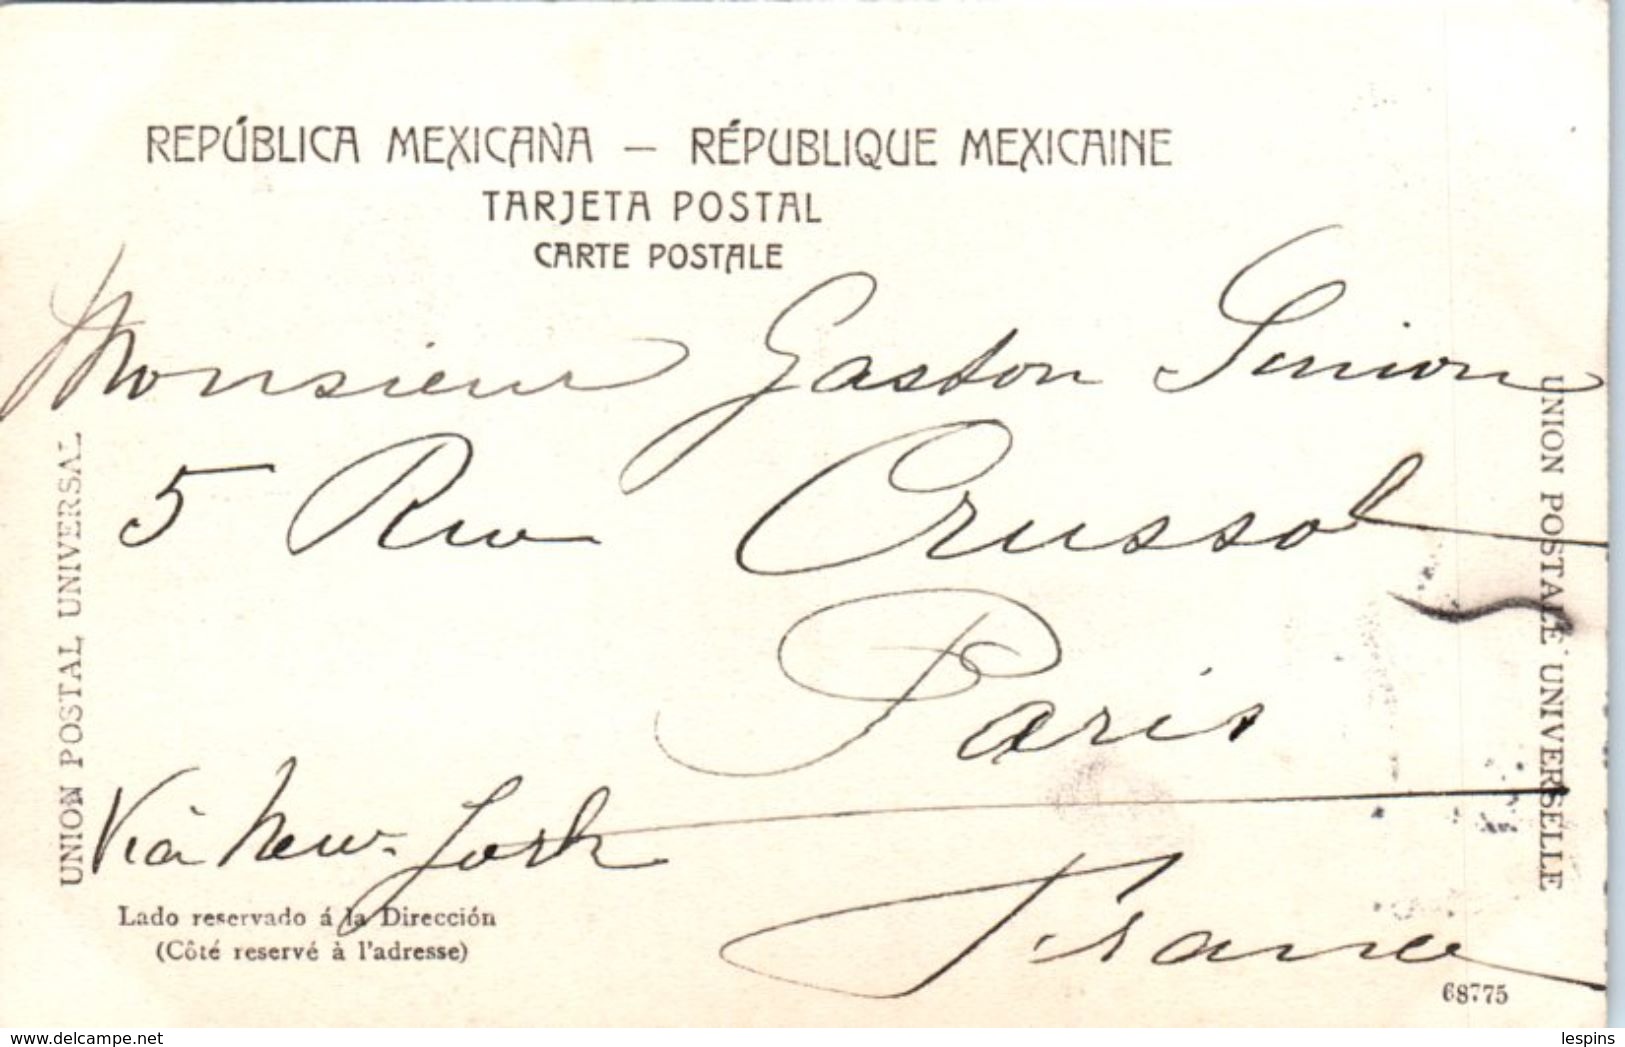 REPÚBLICA MEXICANA — RÉPUBLIQUE MEXICAINE
TARJETA POSTAL
CARTE POSTALE
Monsieur Gaston
5 Rue Crussol
Paris
Via New-York
France
UNION POSTAL UNIVERSAL
UNION POSTALE UNIVERSELLE
Lado reservado á la Dirección
(Côté reservé à l'adresse)
68775
www.delcampe.net
lespins